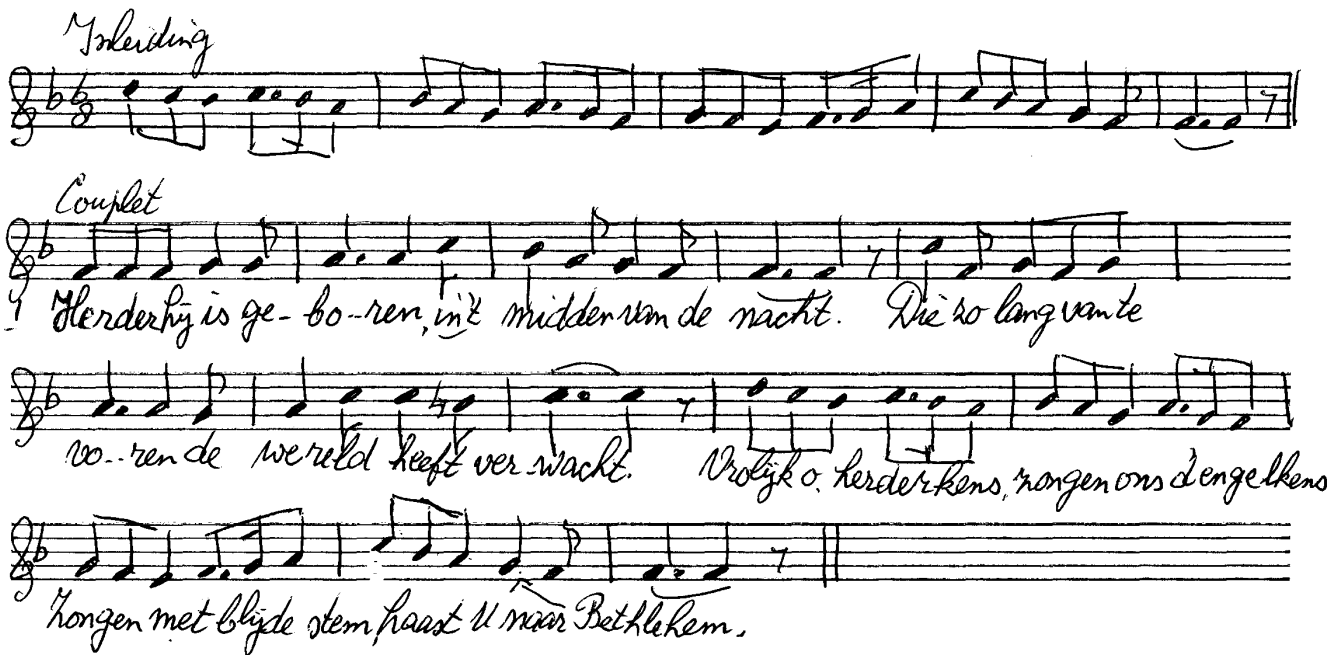 Inleiding
Couplet
1 Herder hij is ge- bo--ren, in't midden van de nacht. Die zo lang van te
vo--ren de wereld heeft ver wacht. Vrolijk o. herderkens, zongen ons d'engelkens
Zongen met blijde stem, haast U naar Bethlehem.